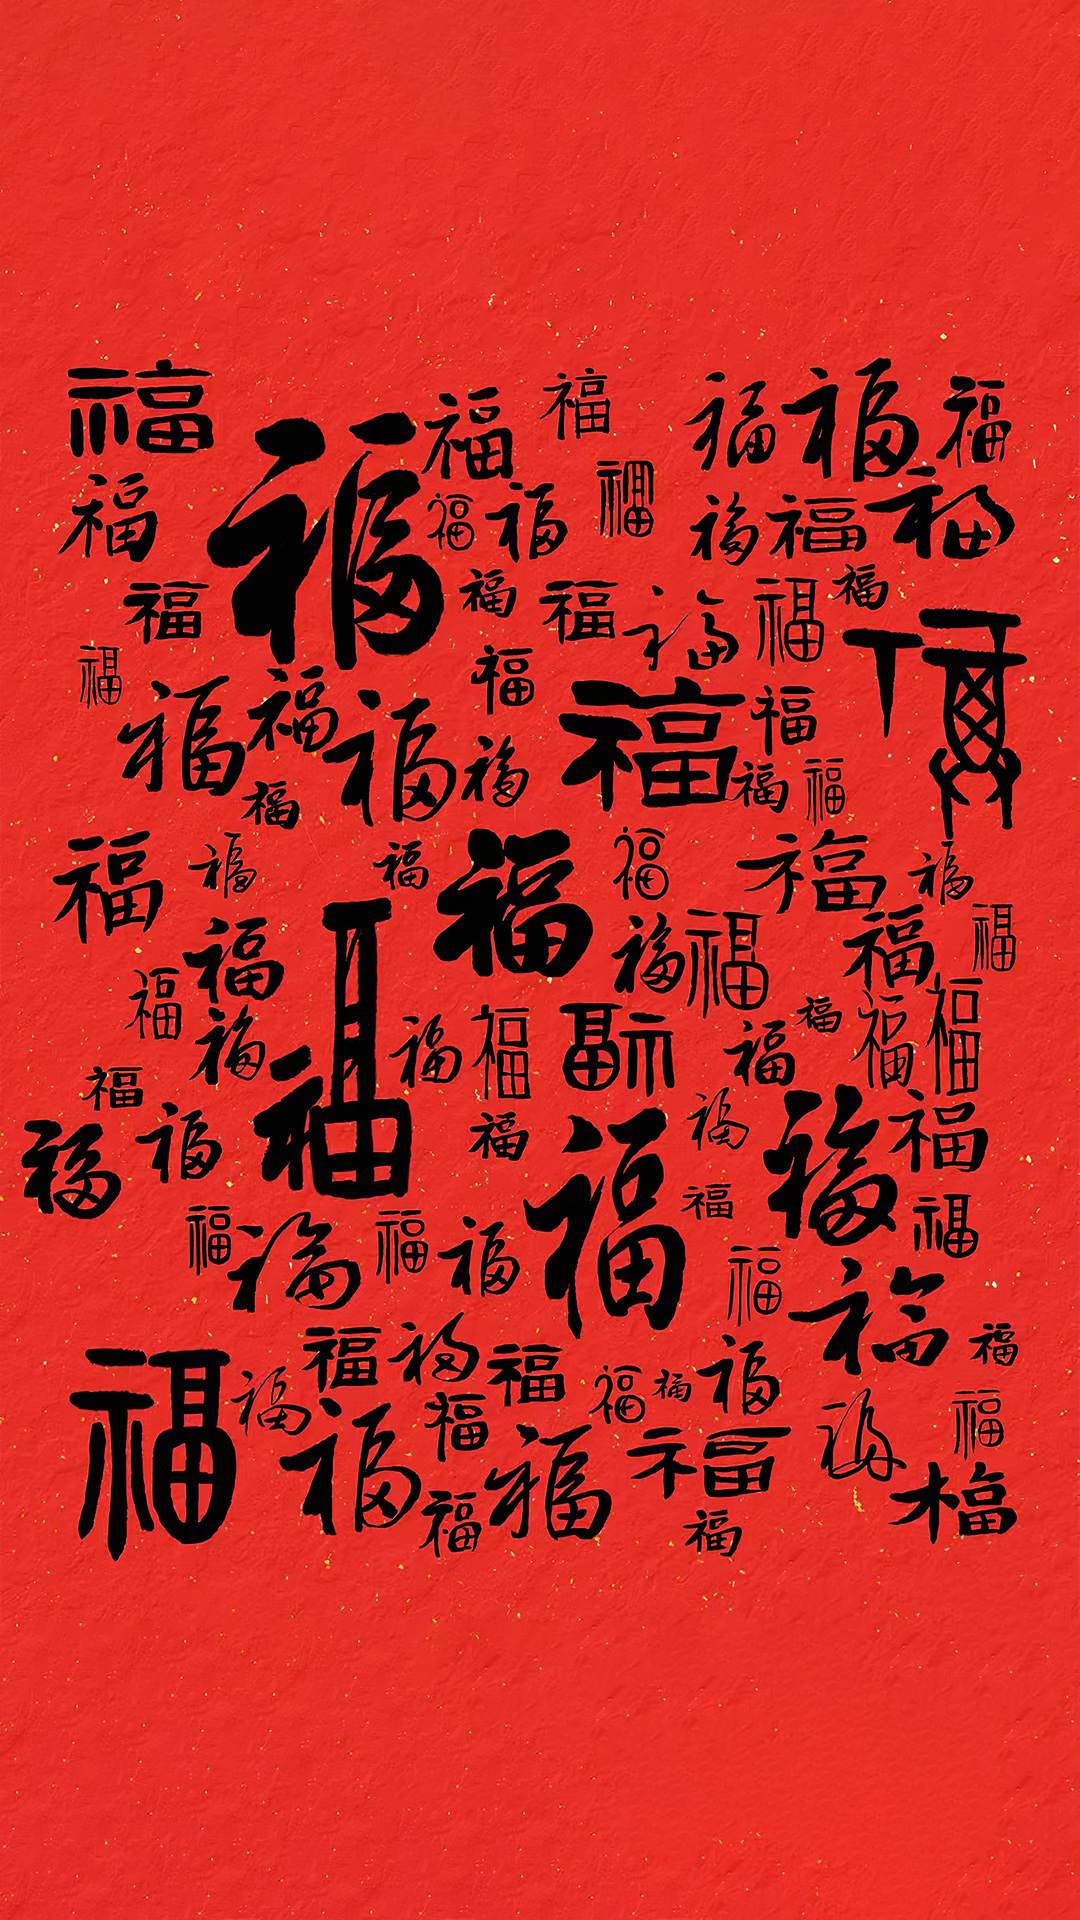 福 福 福 福 福 福 福
福 福 福 福 福 福 福 福 福
福 福 福 福 福 福 福 福
福 福 福 福 福 福 福
福 福 福 福 福
福 福 福 福 福 福 福
福 福 福 福 福 福
福 福 福 福 福 福 福 福 福
福 福 福 福 福 福 福 福
福 福 福 福 福 福 福
福 福 福 福 福 福 福
福 福 福 福 福 福 福
福 福 福 福 福 福 福 福